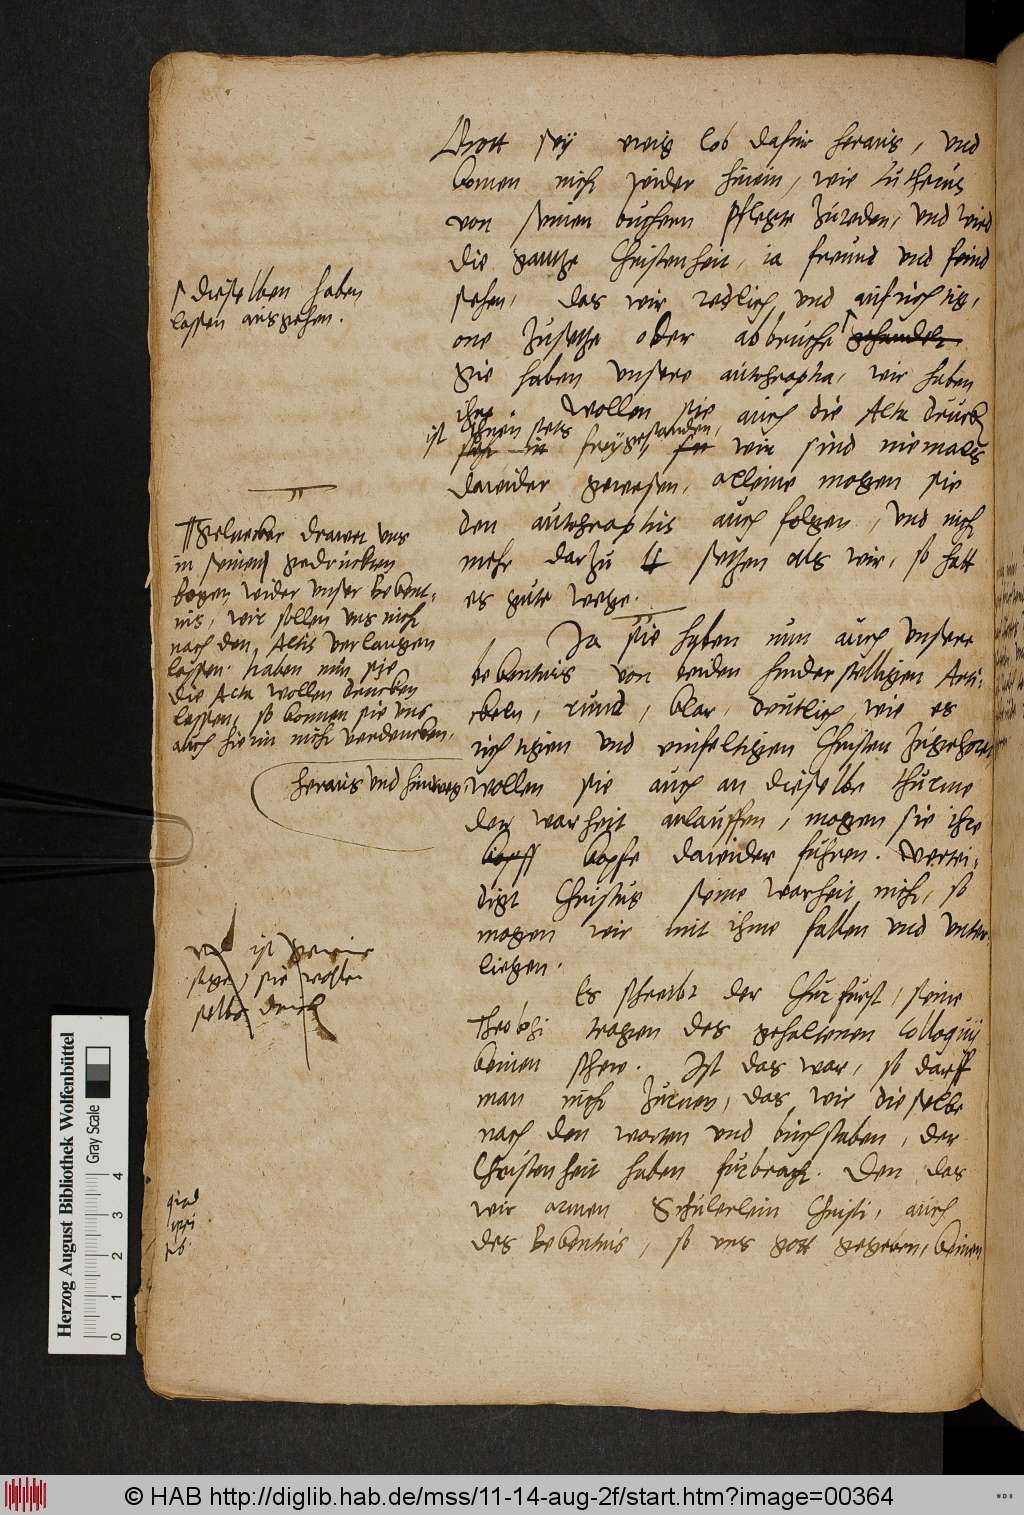 Gott sey ewig lob dafur heraus, und
komen nich wider hinein, wie Lutherus
von seinen buchern pflegte zureden, und wird
die gantze Christenheit, ia freund und feind
sehen, das wir redlich und aufrichtig,
one zusetze oder abbruche gehandelt
sie haben unsere autographa, wir haben
ihre. Wollen sie auch die Acta drucken
ist ihnen stets frey gestanden, wir sind niemals
dawider gewesen, alleine mogen sie
den autographis auch folgen, und nich
mehr darzu setzen als wir, so hatt
es gute wege.
Ja sie haben nun auch unsere
bekentnis von beiden hinderstelligen Arti-
keln, rund, klar, deutlich, wie es
richtigen und einfeltigen Christen zugehoret
wollen sie auch an dieselbe thurme
der warheit anlauffen, mogen sie ihre
kopff kopfe dawider fuhren. Vertei-
digt Christus seine warheit nich, so
mogen wir mit ihme fallen und unter-
liegen.
Es schreibt der Churfurst, seine
Theologi tragen des gehaltenen Colloquij
keinen schew. Ist das war, so darff
man nich zurnen, das wir dieselbe
nach den worten und buchstaben, der
Christenheit haben furbracht. Den das
wir armen Schulerlein Christi, auch
des bekentnis, so uns gott gegeben, keinen
dieselben haben
lassen ausgehen.
Selnecker drawet uns
in seinen gedruckten
bogen wider unser bekent-
nis, wir sollen uns nich
nach den Actis verlangen
lassen. haben nun sie
die Acta wollen drucken
lassen, so konnen sie uns
auch hierin nich verdencken.
heraus und hinweg,
und ist
sie wolten
selbs
Herzog August Bibliothek Wolfenbüttel
Gray Scale
0 1 2 3 4
© HAB http://diglib.hab.de/mss/11-14-aug-2f/start.htm?image=00364